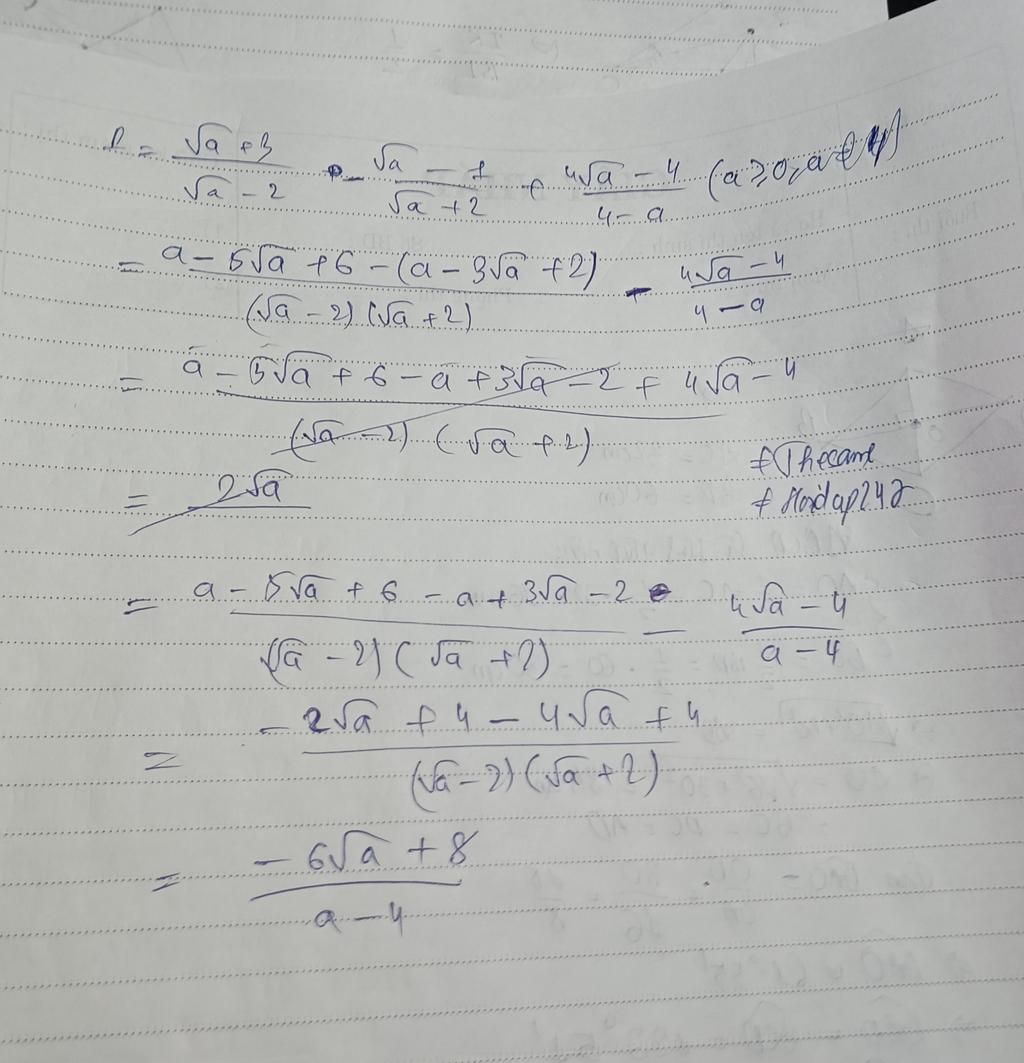 P = (√a + 3)/(√a - 2) - (√a - 1)/(√a + 2) + (4√a - 4)/(4 - a) (a ≥ 0, a ≠ 4)
= (a - 5√a + 6 - (a - 3√a + 2))/((√a - 2)(√a + 2)) - (4√a - 4)/(4 - a)
= (a - 5√a + 6 - a + 3√a - 2 + 4√a - 4)/((√a - 2)(√a + 2))
= 2√a
+ Thecamt
+ Hoidap247
= (a - 5√a + 6 - a + 3√a - 2)/((√a - 2)(√a + 2)) - (4√a - 4)/(a - 4)
= (-2√a + 4 - 4√a + 4)/((√a - 2)(√a + 2))
= (-6√a + 8)/(a - 4)